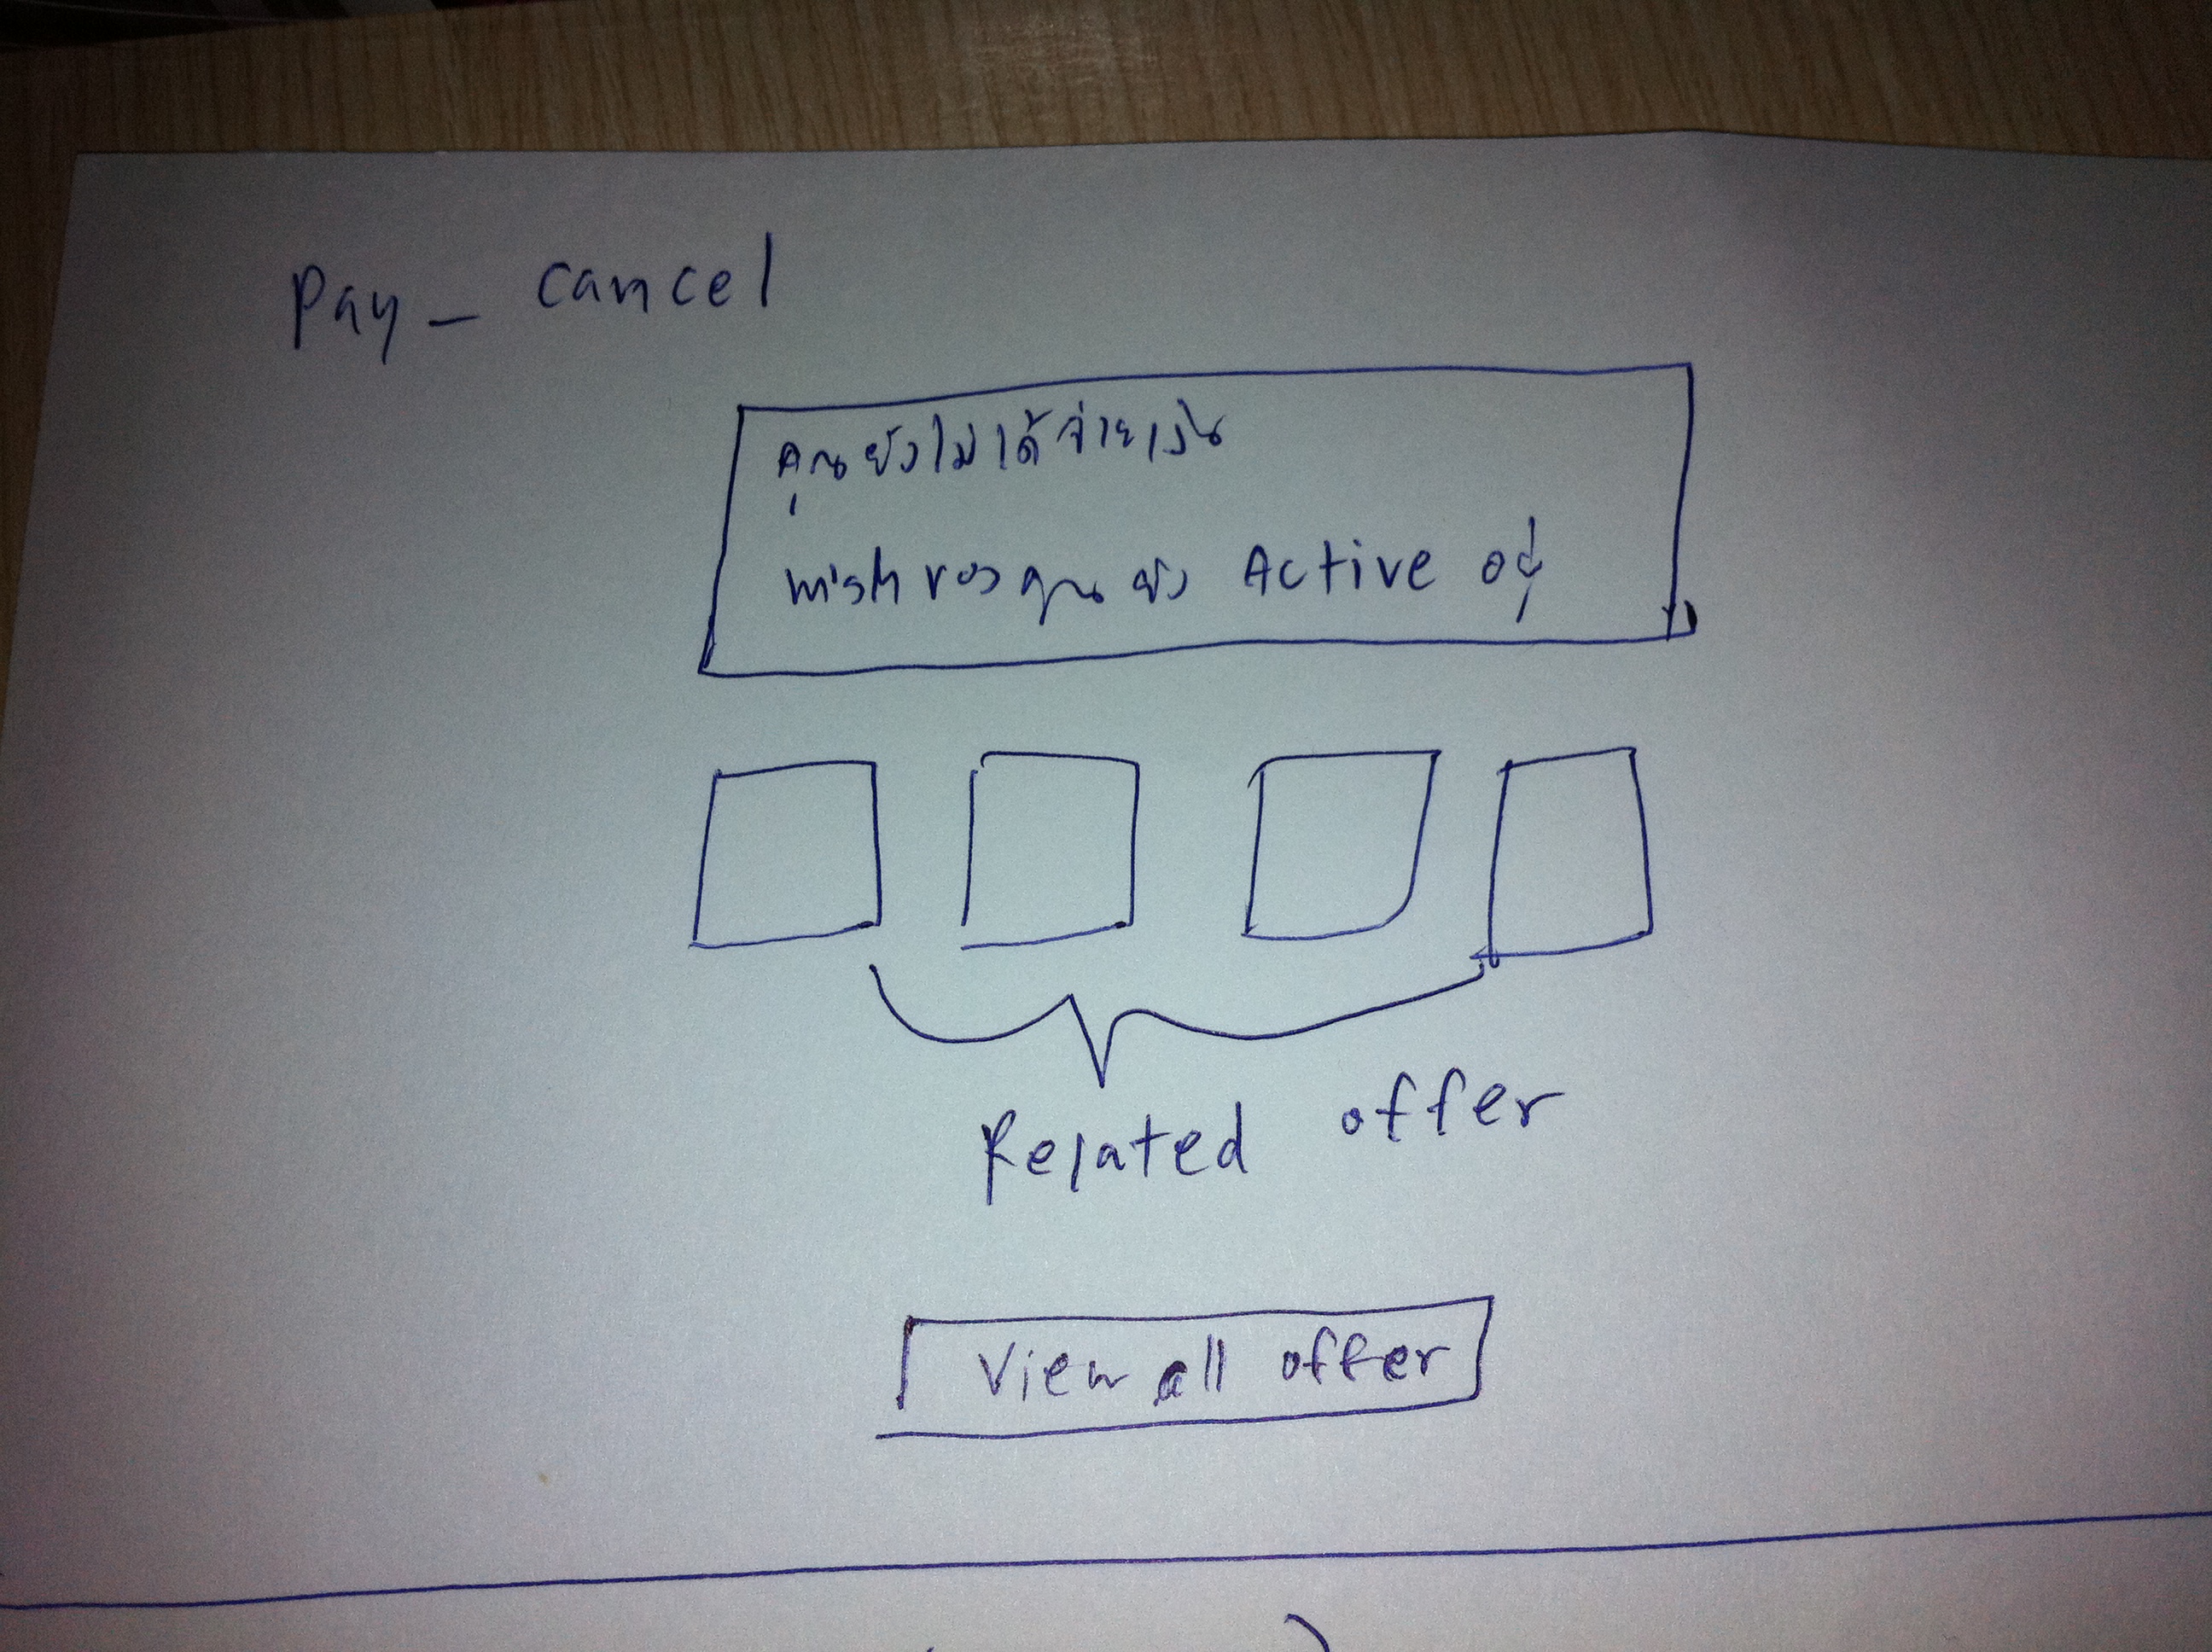 Pay - cancel
คุณยังไม่ได้จ่ายเงิน
wish ของคุณ ยัง Active อยู่
Related offer
View all offer